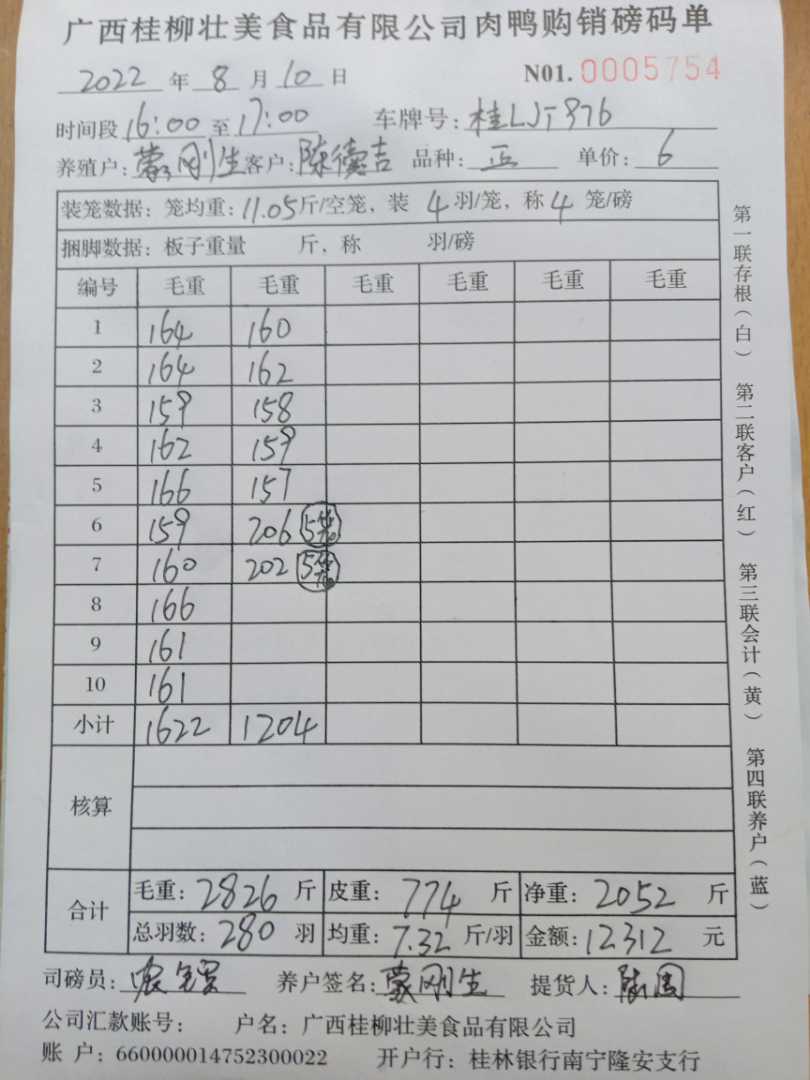 广西桂柳壮美食品有限公司肉鸭购销磅码单
2022 年 8 月 10 日 N01. 0005754
时间段 16:00 至 17:00 车牌号: 桂LJT876
养殖户: 蒙刚生 客户: 陈德吉 品种: 正 单价: 6
装笼数据: 笼均重: 11.05 斤/空笼、装 4 羽/笼, 称 4 笼/磅
捆脚数据: 板子重量 斤, 称 羽/磅
编号 毛重 毛重 毛重 毛重 毛重 毛重
1 164 160
2 164 162
3 159 158
4 162 159
5 166 157
6 159 206 5笼
7 160 202 5笼
8 166
9 161
10 161
小计 1622 1204
核算
合计 毛重: 2826 斤 皮重: 774 斤 净重: 2052 斤
总羽数: 280 羽 均重: 7.32 斤/羽 金额: 12312 元
司磅员: 养户签名: 蒙刚生 提货人:
公司汇款账号: 户名: 广西桂柳壮美食品有限公司
账 户: 660000014752300022 开户行: 桂林银行南宁隆安支行
第一联存根(白) 第二联客户(红) 第三联会计(黄) 第四联养户(蓝)